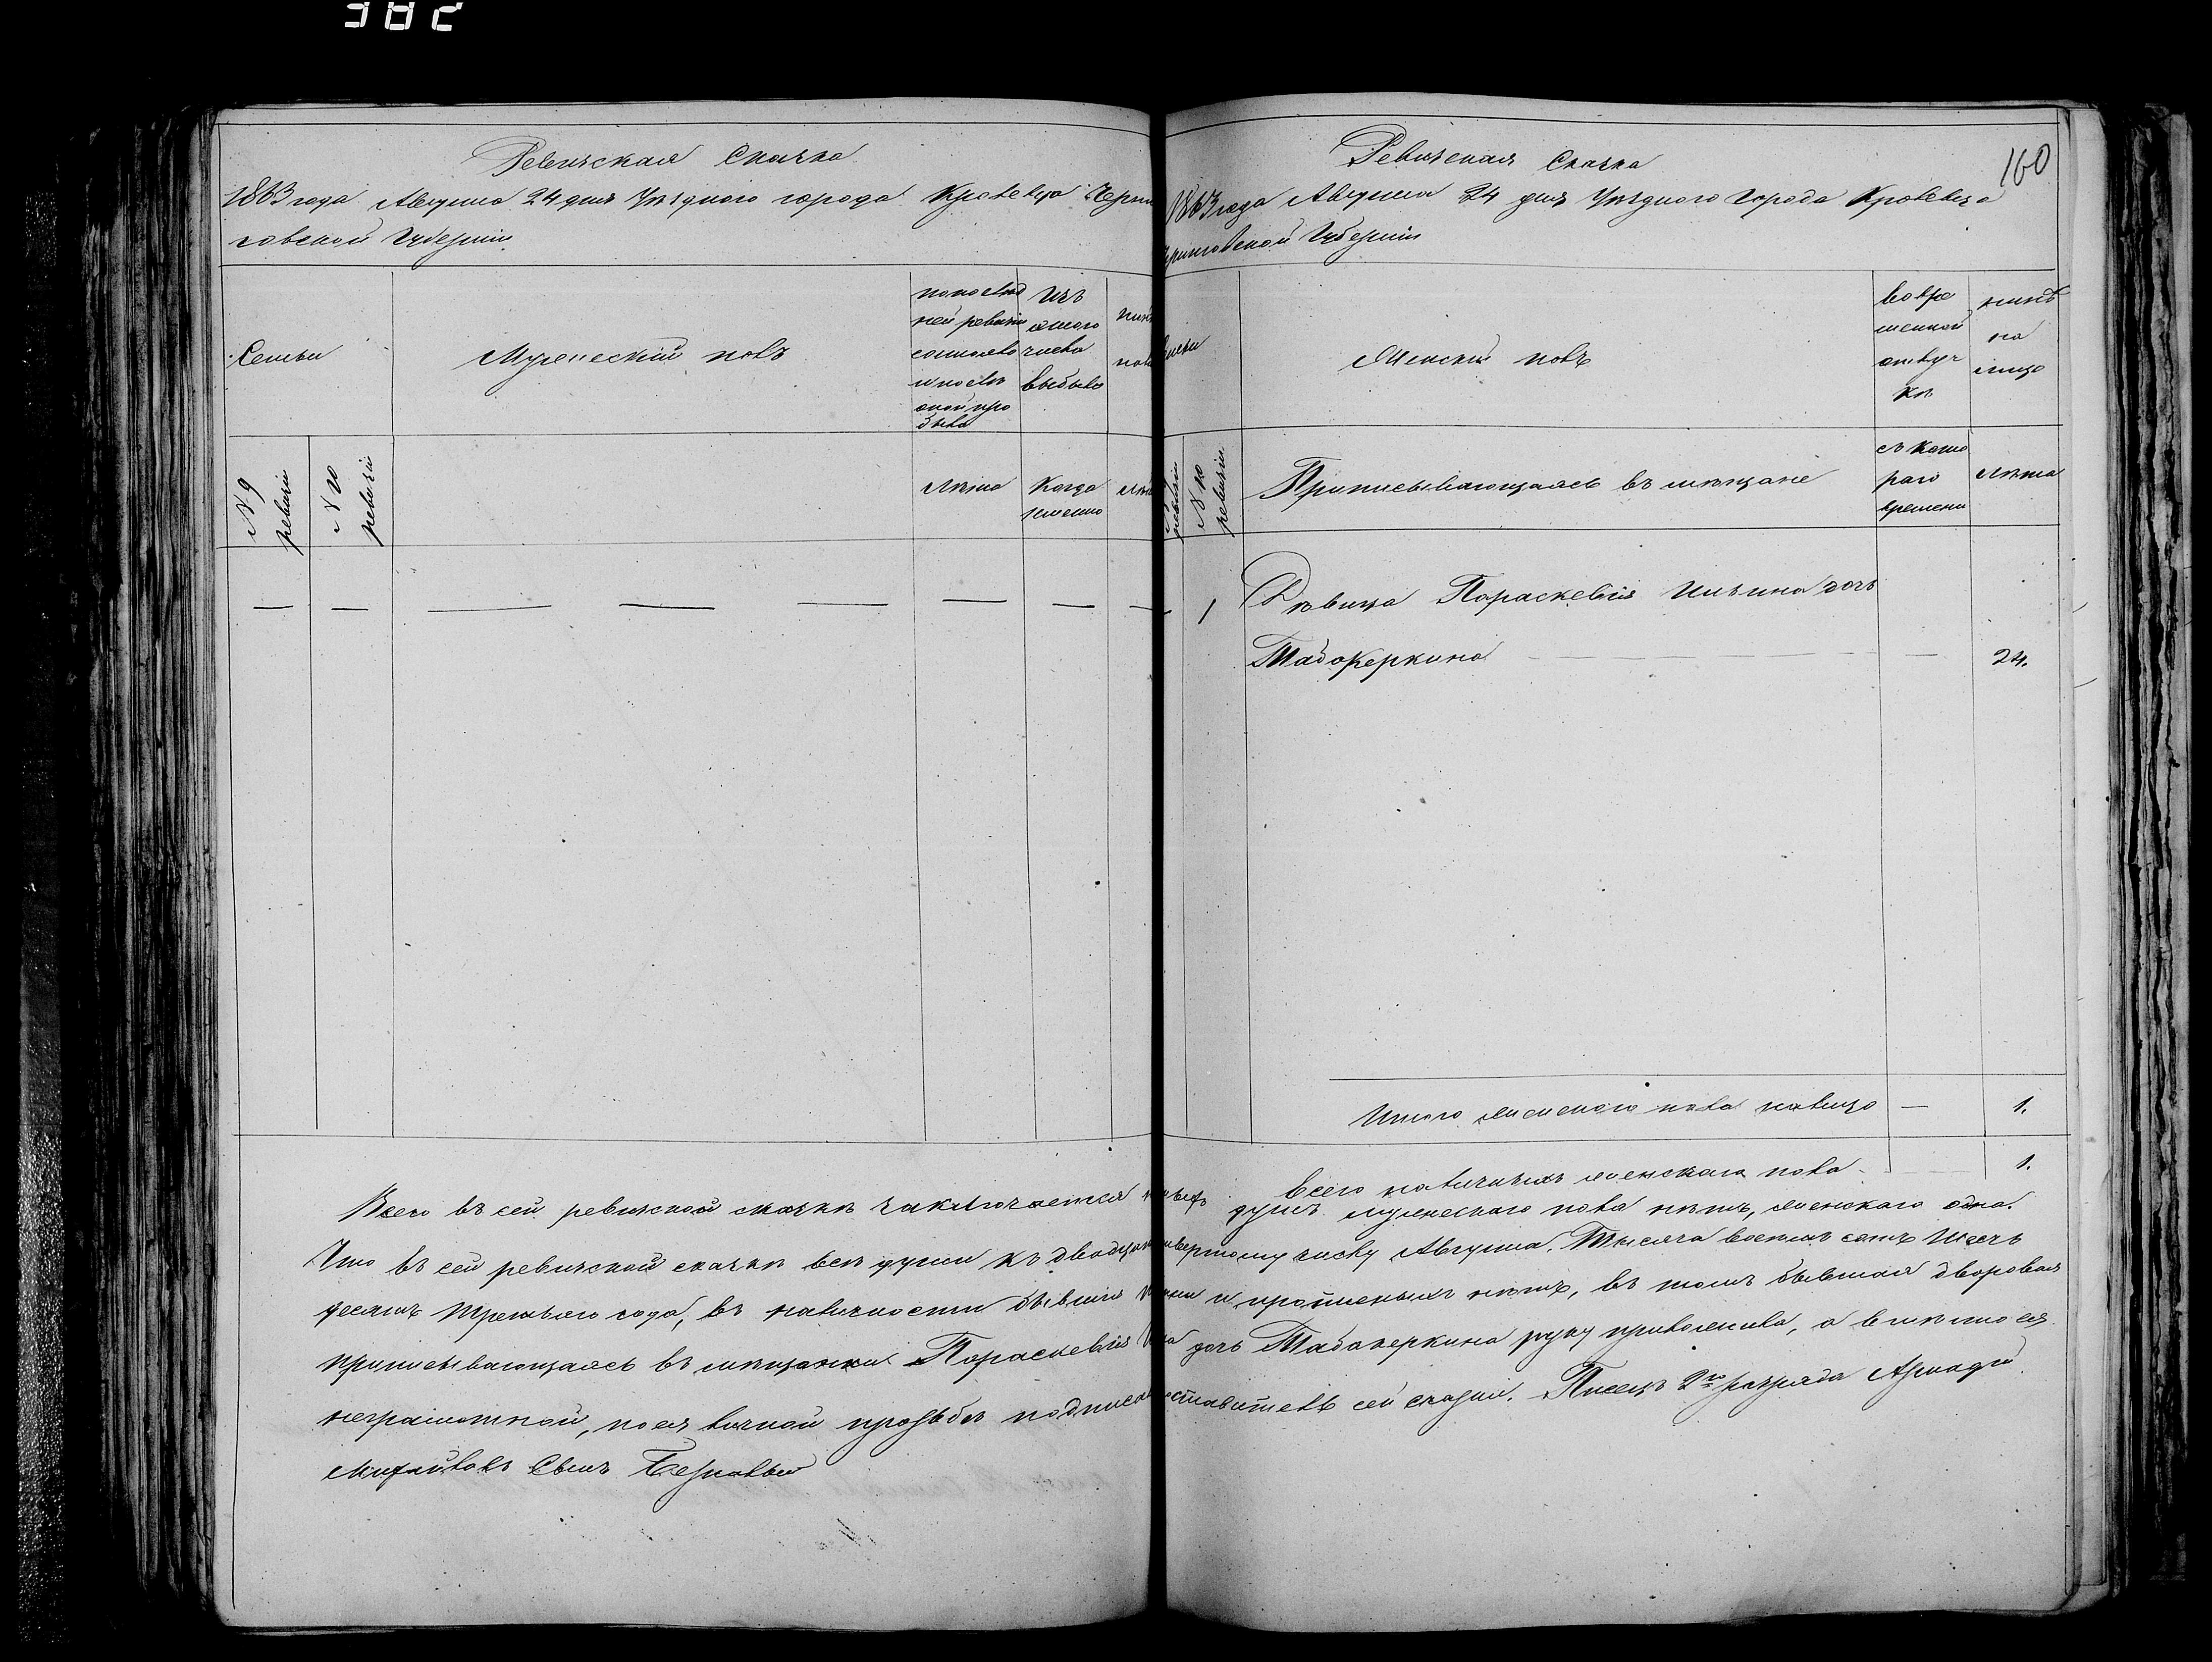 382
Ревизская Сказка
1863 года Августа 24 дня Уѣзднаго города Кролевца Черни
говской Губерніи
Семьи
Мужескій полъ
по послѣд
ней ревизіи
состояло
и послѣ
оной при
было
Изъ
этого
числа
выбыло
№ 9 ревизіи
№ 10 ревизіи
Лѣта
Когда
именно
— — — — — — — —
Всего въ сей ревизской сказкѣ заключается
Что въ сей ревизской сказкѣ всѣ души къ двадцать
десятъ третьяго года, въ наличности бывшія
приписывающаясь въ мѣщанки Параскевія
неграмотной, по ея личной прозьбѣ подписалъ
Михайловъ Сынъ
160
Ревизская Сказка
1863 года Августа 24 дня Уѣзднаго Города Кролевца
Черниговской Губерніи
Семьи
Женскій полъ
во вре
менной
отлуч
кѣ
нынѣ
на
лицо
№ 10 ревизіи
Приписывающаясь въ мѣщане
съ кото
раго
времени
Лѣта
1 Дѣвица Параскевія Ильина дочь
Табакеркина — — 24.
Итого женскаго пола налицо — 1.
Всего наличныхъ женскаго пола 1.
душъ мужескаго пола нѣтъ, женскаго одна.
четвертому числу Августа, Тысяча восемь сотъ шесть
и пропущеныхъ нѣтъ, въ томъ бывшая дворовая
дочь Табакеркина руку приложила, а вмѣсто ея
составитель сей сказки. Писецъ 2го разряда Аркадій